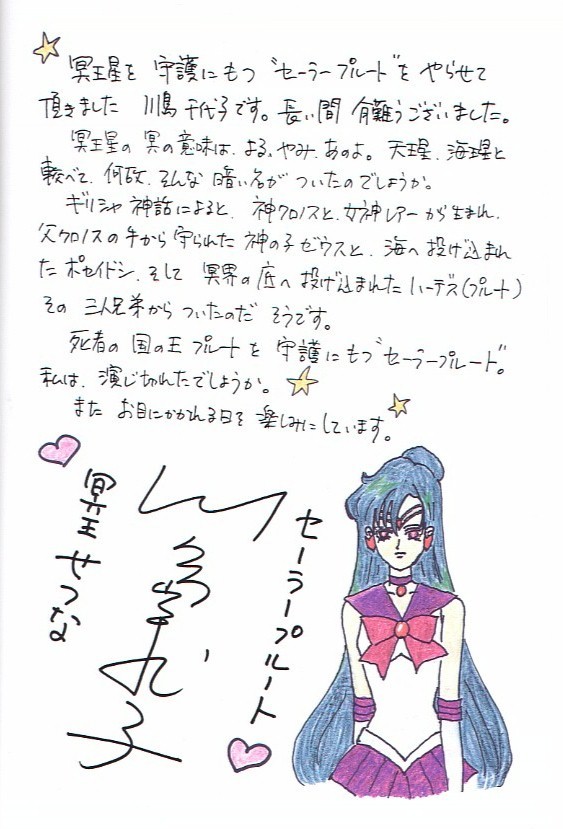 冥王星を 守護にもつ “セーラープルート” を やらせて
頂きました 川島 千代子です。長い間 有難うございました。
冥王星の 冥の意味は、よる、やみ、あのよ。天王星、海王星と
較べて、何故、そんな 暗い名が ついたのでしょうか。
ギリシャ 神話によると、神クロノスと、女神レアーから生まれ、
父クロノスの手から 守られた 神の子ゼウスと、海へ 投げ込まれ
たポセイドン、そして 冥界の底へ投げ込まれたハーデス(プルート)
その 三人兄弟から ついたのだ そうです。
死者の 国の王 プルートを 守護にもつ “セーラープルート”。
私は、演じ切れたでしょうか。
また お目にかかれる日を 楽しみにしています。
冥王 せつな
川島千代子
セーラープルート